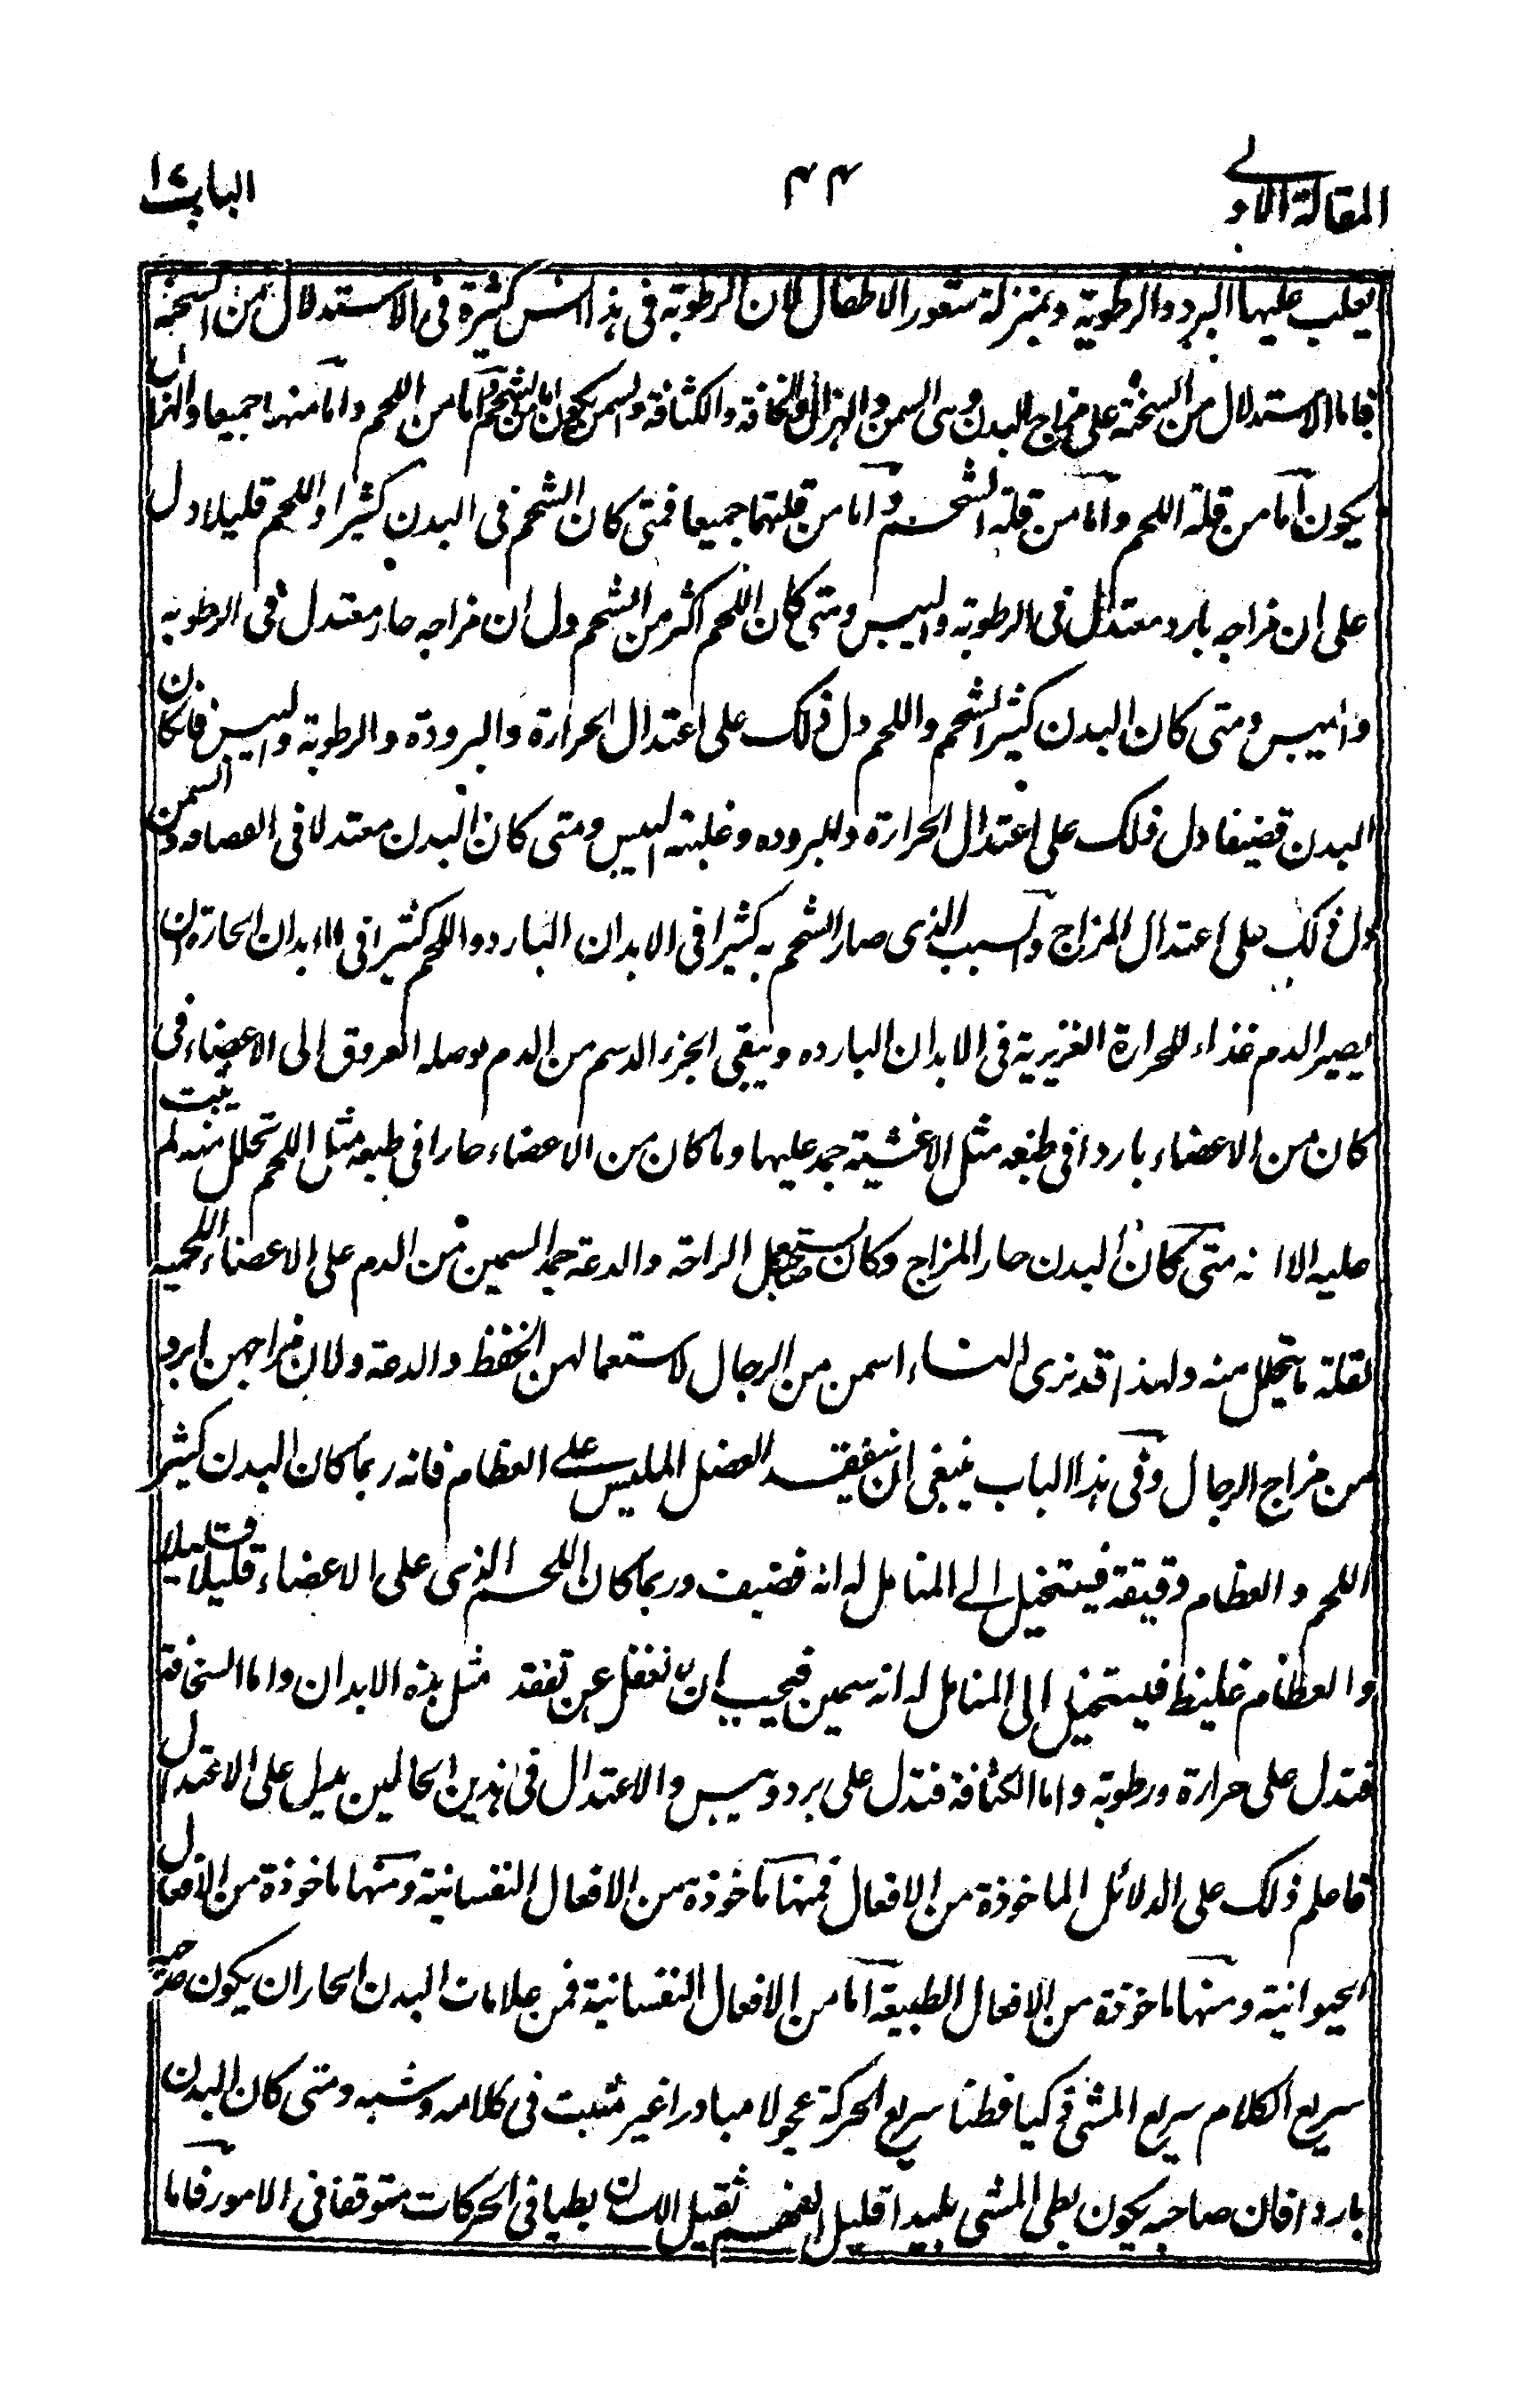 المقالة الاولے
۴۴
الباب ۱۶
يغلب عليها البرد والرطوبة وبمنزلة شعور الاطفال لان الرطوبة فى هذا السن كثيرة فى الاستدلال من السحنة
فاما الاستدلال من السحنة على مزاج البدن وهى السمن والهزال والنحافة والكثافة والسمن يكون اما من الشحم واما من اللحم واما منهما جميعا والهزال
يكون اما من قلة اللحم واما من قلة الشحم واما من قلتهما جميعا فمتى كان الشحم فى البدن كثيرا واللحم قليلا دل
على ان مزاجه بارد معتدل فى الرطوبة واليبس ومتى كان اللحم اكثر من الشحم دل ان مزاجه حار معتدل فى الرطوبه
واليبس ومتى كان البدن كثير الشحم واللحم دل ذلك على اعتدال الحرارة والبرودة والرطوبة واليبس فان كان
البدن قضيفا دل ذلك على اعتدال الحرارة والبروده وغلبته اليبس ومتى كان البدن معتدلا فى القصافه والسمن
دل ذلك على اعتدال المزاج والسبب الذى صار الشحم به كثيرا فى الابدان البارد واللحم كثيرا فى الابدان الحارة ان
يصير الدم غذاء للحرارة الغريزية فى الابدان البارده ويبقى الجزء الدسم من الدم يوصله العروق الى الاعضاء فى
كان من الاعضاء باردا فى طبعه مثل الاغشية جمد عليها وما كان من الاعضاء حارا فى طبعه مثل اللحم تحلل منه لم يثبت
عليه الا انه متى كان البدن حار المزاج وكان صاحبه يستعمل الراحة والدعة جمد السمين من الدم على الاعضاء اللحميه
لقلة ما يتحلل منه ولهذا قد نرى النساء اسمن من الرجال لاستعمالهن الخفظ والدعة ولان مزاجهن ابرد
من مزاج الرجال وفى هذا الباب ينبغى ان يتفقد العضل الملبس علے العظام فانه ربما كان البدن كثير
اللحم والعظام دقيقة فيتخيل الے المتامل له انه قضيف وربما كان اللحم الذى على الاعضاء قليلا قليلا
والعظام غليظ فيتخيل الى المتامل له انه سمين فيجب ان لا تغفل عن تفقد مثل هذه الابدان واما السخافة
فتدل على حرارة ورطوبة واما الكثافة فتدل على برد ويبس والاعتدال فى هذين الحالين يدل على الاعتدال
فاعلم ذلك على الدلائل الماخوذة من الافعال فمنها ماخوذة من الافعال النفسانية ومنها ماخوذة من الافعال
الحيوانية ومنها ماخوذة من الافعال الطبيعة اما من الافعال النفسانية فمن علامات البدن الحار ان يكون صاحبه
سريع الكلام سريع المشى ذكيا فطنا سريع الحركة عجولا مبادرا غير متثبت فى كلامه ومشيه ومتى كان البدن
باردا فان صاحبه يكون بطى المشى بليدا قليل الفهم ثقيل اللسان بطيا فى الحركات متوقفا فى الامور فاما